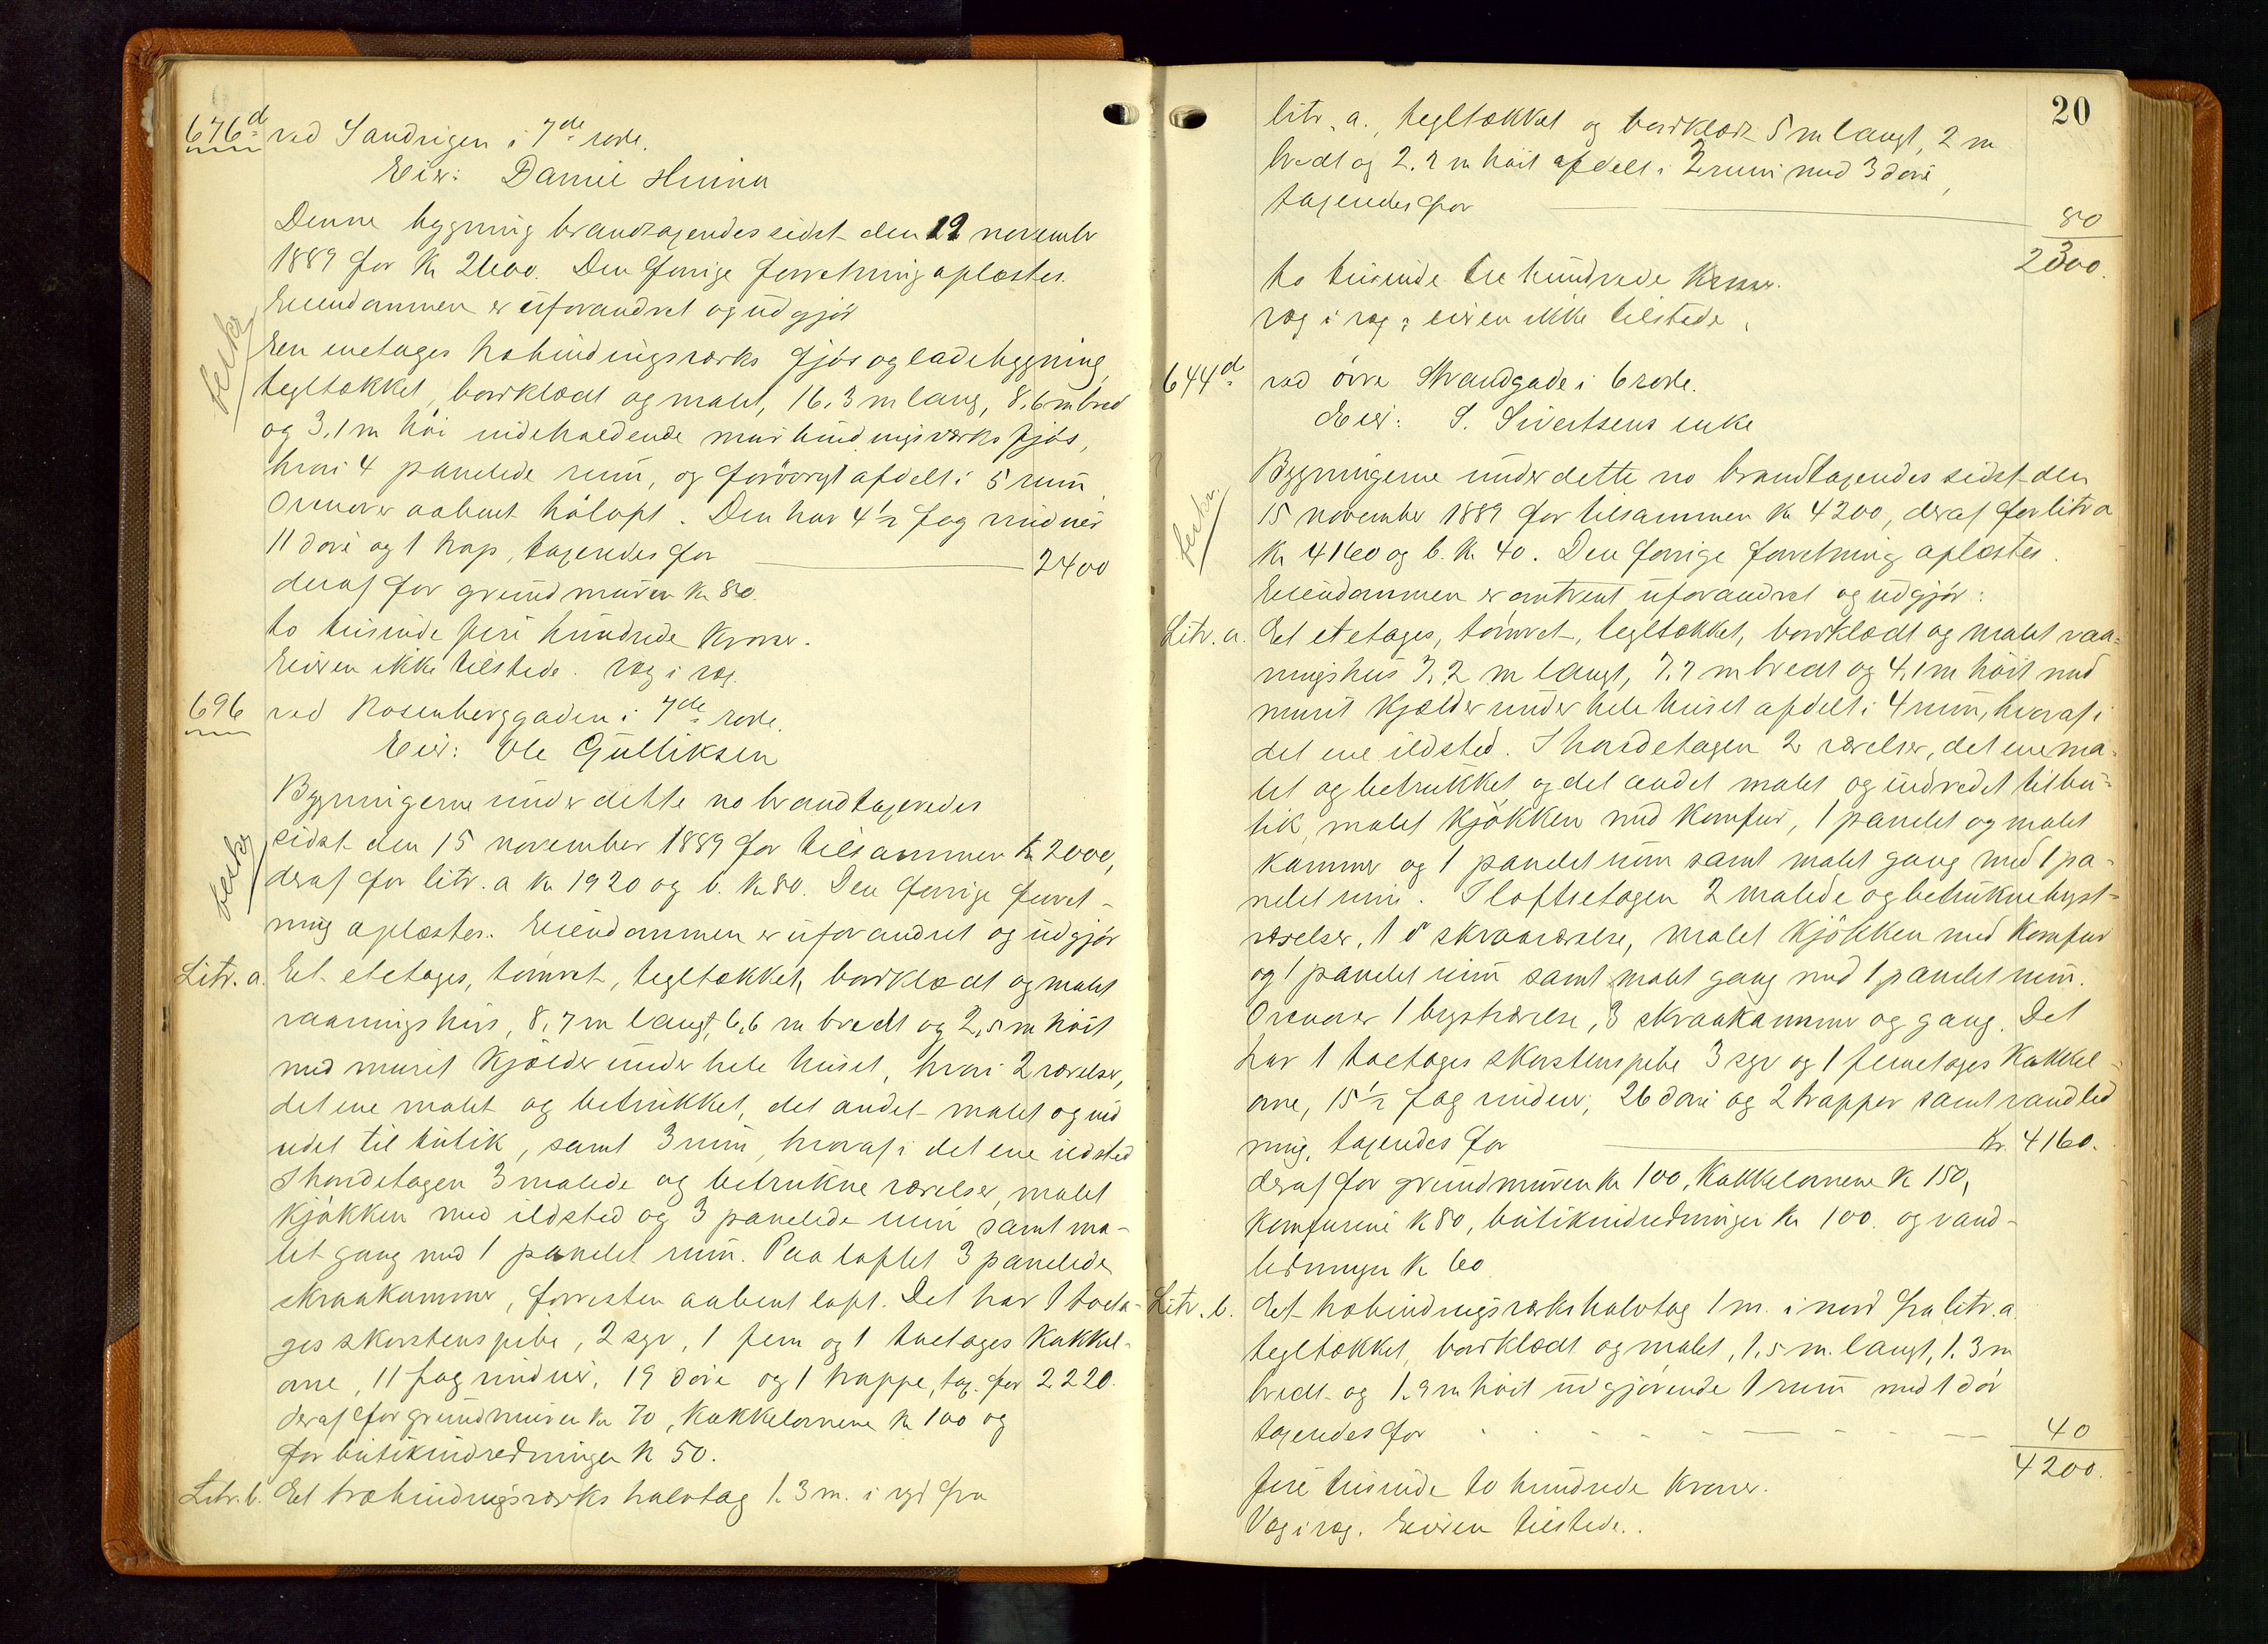 676d ved Sandvigen i 7de rode.
Eier: Daniel Hinna
Denne bygning brandtaxeredes sidst den 12 novembr
1889 for Kr 2400. Den forrige forretning oplæstes.
Eiendommen er uforandret og udgjør
En enetages træbindingsværks fjøs og ladebygning,
tegltækket, bordklædt og malet, 16,3 m lang, 8,6 m bred
og 3,1 m høi indeholdende mur bindingsværks fjøs,
hvori 4 panelede rum, og forøvrigt afdelt i 5 rum
Ovenover aabent høloft. Den har 4½ fag vinduer
11 døre og 1 trap, taxeredes for 2400
deraf for grundmuren Kr 80.
to tusinde fire hundrede Kroner.
Eieren ikke tilstede. Væg i væg.
696 ved Rosenberggaden i 7de rode.
Eier: Ole Gulliksen
Bygningerne under dette no brandtaxeredes
sidst den 15 november 1889 for tilsammen Kr 2000,
deraf for litr. a Kr 1920 og b. Kr 80. Den forrige forret-
ning oplæstes. Eiendommen er uforandret og udgjør
Litr. a. Et etetages, tømret, tegltækket, bordklædt og malet
vaaningshus, 8,7 m langt, 6,6 m bredt og 2,5 m høit
med muret Kjælder under hele huset, hvori 2 værelser,
det ene malet og betrukket, det andet malet og ind
redet til butik, samt 3 rum, hvoraf i det ene ildsted
I hovedetagen 3 malede og betrukne værelser, malet
Kjøkken med ildsted og 3 panelede rum samt ma-
let gang med 1 panelet rum. Paa loftet 3 panelede
skraakammer, forresten aabent loft. Det har 1 toeta-
ges skorstenspibe, 2 sgr, 1 fem og 1 toetages Kakkel-
ovne, 11 fag vinduer, 19 døre og 1 trappe, tax. for 2220.
deraf for grundmuren Kr 70, Kakkelovnene Kr 100 og
for butikindredningen Kr 50.
Litr. b. Et træbindingsværks halvtag 1.3 m. i syd fra
20
litr. a., tegltækket og bordklædt 5 m langt, 2 m
bredt og 2.2 m høit afdelt i 2 rum med 3 døre,
taxeredes for 80
2300.
to tusinde tre hundrede Kroner.
væg i væg; eieren ikke tilstede.
644d ved øvre Strandgade i 6 rode.
Eier: S. Sivertsens enke
Bygningerne under dette no brandtaxeredes sidst den
15 november 1889 for tilsammen Kr 4200, deraf for litr a
Kr. 4160 og b. Kr. 40. Den forrige forretning oplæstes.
Eiendommen er omtrent uforandret og udgjør:
Litr. a. Et etetages, tømret, tegltækket, bordklædt og malet vaa-
ningshus 7,2 m langt, 7,7 m bredt og 4,1 m høit med
muret Kjælder under hele huset afdelt i 4 rum, hvoraf i
det ene ildsted. I hovedetagen 2 værelser, det ene ma-
let og betrukket og det andet malet og indredet til bu-
tik, malet Kjøkken med Komfur, 1 panelet og malet
Kammer og 1 panelet rum samt malet gang med 1 pa-
nelet rum. I loftsetagen 2 malede og betrukne kvist-
værelser, 1 do skraaværelse, malet Kjøkken med Komfur
og 1 panelet rum samt malet gang med 1 panelet rum.
Ovenover 1 kvistværelse, 3 skraakammer og gang. Det
har 1 toetages skorstenspibe 3 sgr og 1 femetages Kakkel-
ovne, 15½ fag vinduer, 26 døre og 2 trapper samt vandled
ning, taxeredes for Kr. 4160.
deraf for grundmuren Kr 100, Kakkelovnene Kr 150,
Komfurene Kr 80, butikindredningen Kr 100. og vand-
ledningen Kr 60
Litr. b. Et træbindingsværks halvtag 1 m. i nord fra litr. a.
tegltækket, bordklædt og malet, 1,5 m. langt, 1.3 m
bredt og 1.9 m høit udgjørende 1 rum med 1 dør
taxeredes for 40
4200.
fire tusinde to hundrede Kroner.
Væg i væg. Eieren tilstede.